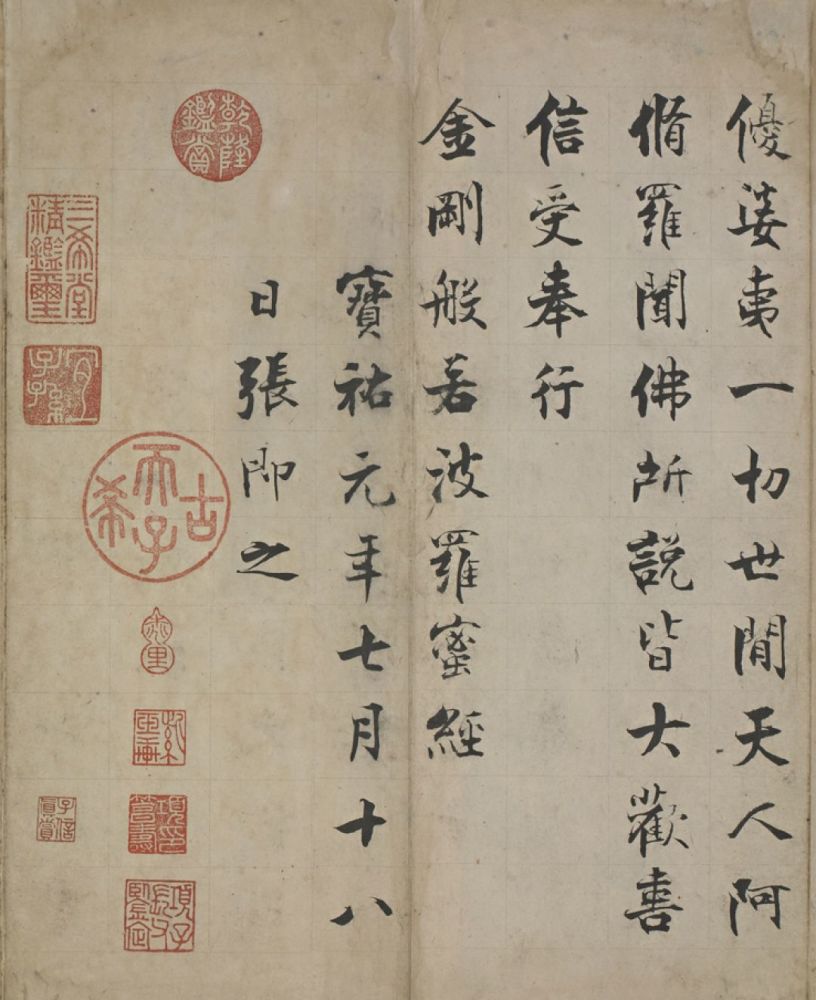 優婆夷一切世間天人阿
脩羅聞佛所說皆大歡喜
信受奉行
金剛般若波羅蜜經
寶祐元年七月十八
日張即之
乾隆鑑賞
三希堂精鑑璽
宜子孫
古希天子
子信真賞